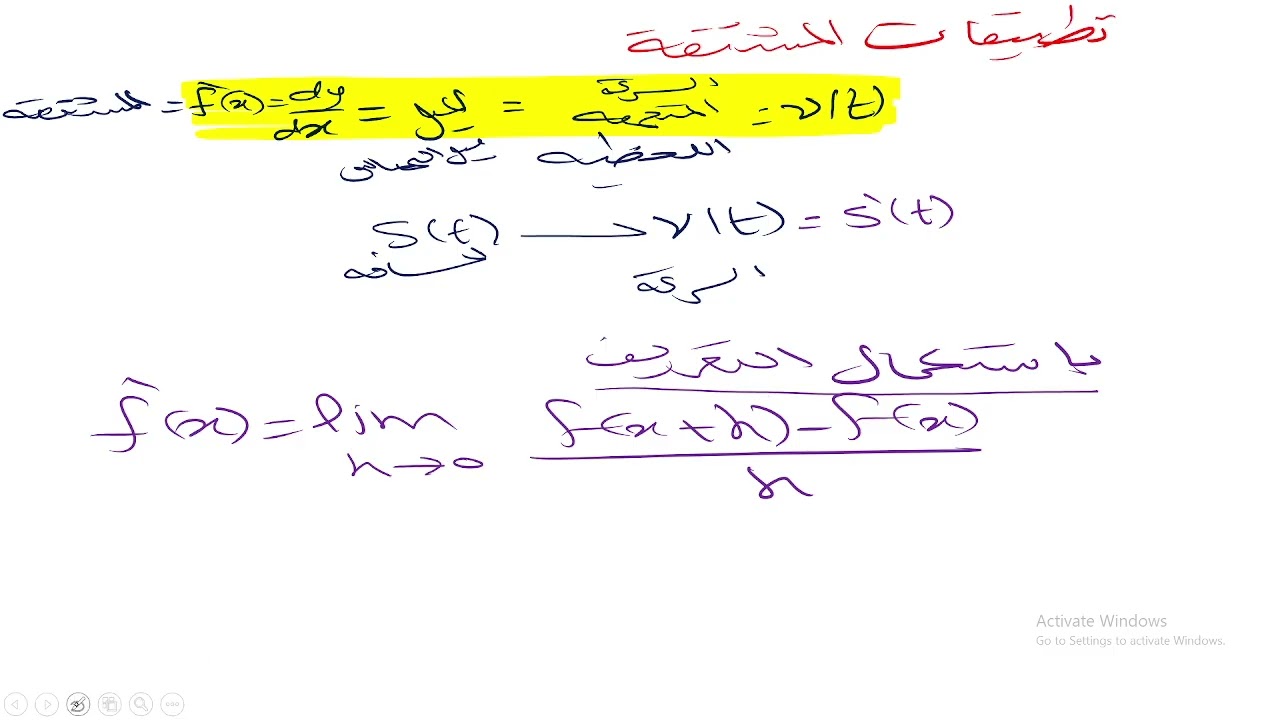 تطبيقات المشتقة
المشتقة = f'(x) = dy/dx = الميل = السرعة المتجهه = v(t)
ميل المماس اللحظيه
S(t) → v(t) = S'(t)
مسافه السرعة
باستعمال التعريف
f'(x) = lim h→0 f(x+h) - f(x) / h
Activate Windows
Go to Settings to activate Windows.